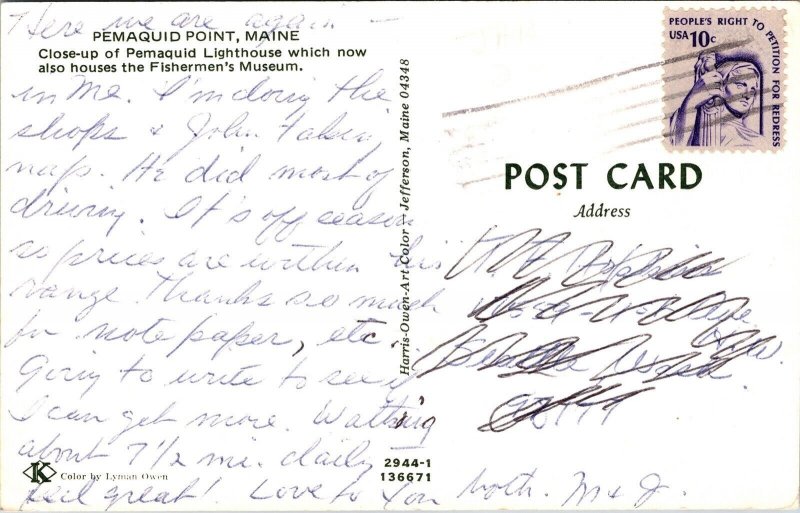 Here we are again –
PEMAQUID POINT, MAINE
Close-up of Pemaquid Lighthouse which now
also houses the Fishermen's Museum.
in Me. I'm doing the
shops & John taking
nap. He did most of
driving. It's off season
so prices are within this
range. Thanks so much
for note paper, etc.
Going to write to see if
I can get more. Walking
about 7 1/2 mi. daily –
feel great! Love to you both. M & J.
K Color by Lyman Owen
2944-1
136671
Harris-Owen-Art-Color – Jefferson, Maine 04348
PEOPLE'S RIGHT TO PETITION FOR REDRESS
USA 10c
POST CARD
Address